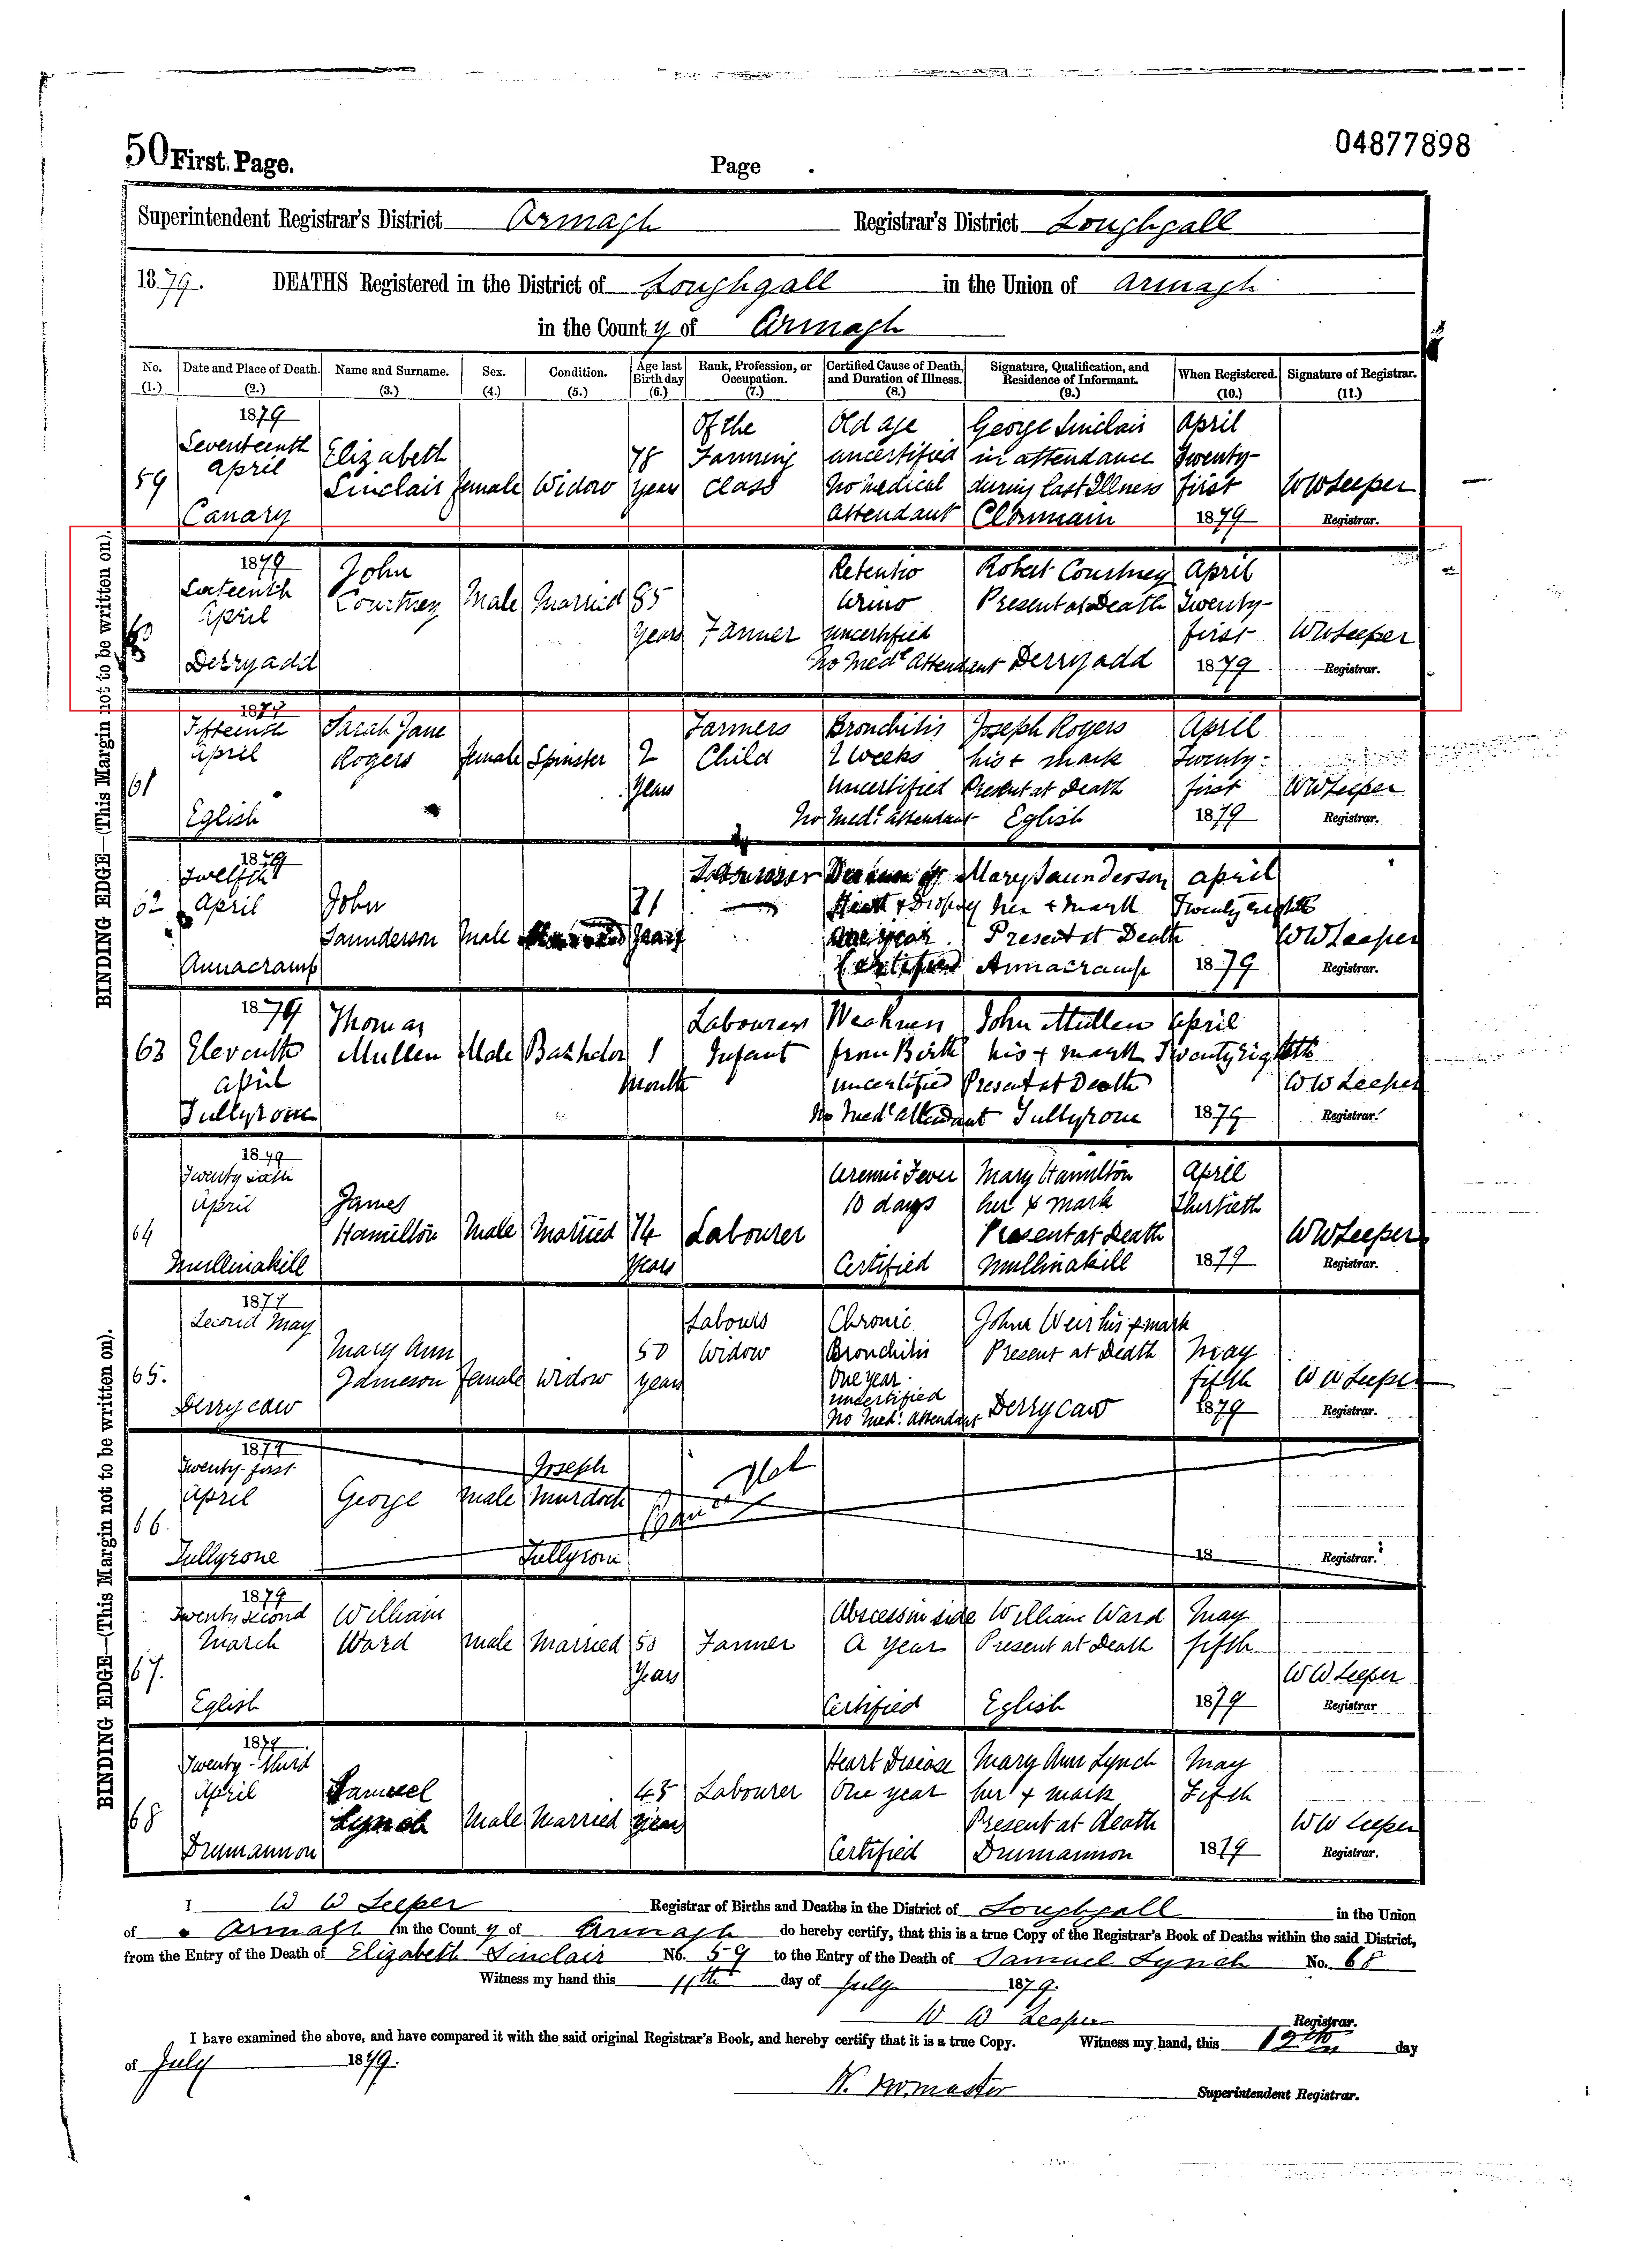 50 First. Page.
Page
04877898
Superintendent Registrar's District Armagh Registrar's District Loughgall
1879. DEATHS Registered in the District of Loughgall in the Union of Armagh
in the County of Armagh
No. Date and Place of Death. Name and Surname. Sex. Condition. Age last Birthday Rank, Profession, or Occupation. Certified Cause of Death, and Duration of Illness. Signature, Qualification, and Residence of Informant. When Registered. Signature of Registrar.
(1.) (2.) (3.) (4.) (5.) (6.) (7.) (8.) (9.) (10.) (11.)
1879 Of the Old age George Sinclair April
Seventeenth Elizabeth 78 Farming uncertified in attendance Twenty-
April
59 Sinclair female Widow years class No medical during last Illness first WWLeeper
Canary attendant Clonmain 1879 Registrar.
1879 John Retentio Robert Courtney April
Sixteenth Courtney Male Married 85 Urino Present at Death Twenty-
April years Farmer uncertified first WWLeeper
Derryadd No Medl attendant Derryadd 1879 Registrar.
1879
Fifteenth Sarah Jane Farmers Bronchitis Joseph Rogers April
April Rogers female Spinster 2 Child 2 weeks his + mark Twenty-
61 Years Uncertified Present at Death first WWLeeper
Eglish No Medl attendant Eglish 1879 Registrar.
1879
Twelfth Labourer Mary Saunderson April
62 April John 71 her + mark Twenty eighth
Saunderson Male years one year Present at Death WWLeeper
Annacramp Certified Annacramp 1879 Registrar.
1879 Thomas Labourers Weakness John Mullen April
63 Eleventh Mullen Male Bachelor 1 Infant from Birth his + mark Twenty Eighth
April Month uncertified Present at Death WWLeeper
Tullyrone No Medl attendant Tullyrone 1879 Registrar.
1879
Twenty sixth Uremic Fever Mary Hamilton April
April James 10 days her x mark Thirtieth
64 Hamilton Male Married 74 Labourer Present at Death WWLeeper
Mullinakill Years Certified Mullinakill 1879 Registrar.
1879
Second May Labours Chronic John Weir his + mark
Mary Ann 50 Widow Bronchitis Present at Death May
65. Jameson female Widow years One year fifth WWLeeper
uncertified
Derrycaw No Medl attendant Derrycaw 1879 Registrar.
1879
Twenty-first Joseph Not
April George Male Murdoch
66.
Tullyrone Tullyrone 18 Registrar.
1879
Twenty second William Abscess in side William Ward May
March Ward Male Married 50 Farmer A year Present at Death fifth
67. Years WWLeeper
Eglish Certified Eglish 1879 Registrar
1879
Twenty-Third Heart Disease Mary Ann Lynch May
April Samuel 45 Labourer One year her + mark Fifth
68 Lynch Male Married years Present at death WWLeeper
Drumannon Certified Drumannon 1879 Registrar.
BINDING EDGE—(This Margin not to be written on).
BINDING EDGE—(This Margin not to be written on).
I W W Leeper Registrar of Births and Deaths in the District of Loughgall in the Union
of Armagh in the County of Armagh do hereby certify, that this is a true Copy of the Registrar's Book of Deaths within the said District,
from the Entry of the Death of Elizabeth Sinclair No. 59 to the Entry of the Death of Samuel Lynch No. 68
Witness my hand this 11th day of July 1879.
W W Leeper Registrar.
I have examined the above, and have compared it with the said original Registrar's Book, and hereby certify that it is a true Copy. Witness my hand, this 12th day
of July 1879.
Superintendent Registrar.